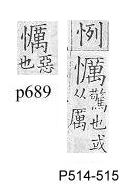 惡
也
p689
㤠
驚也或
从厲
P514-515